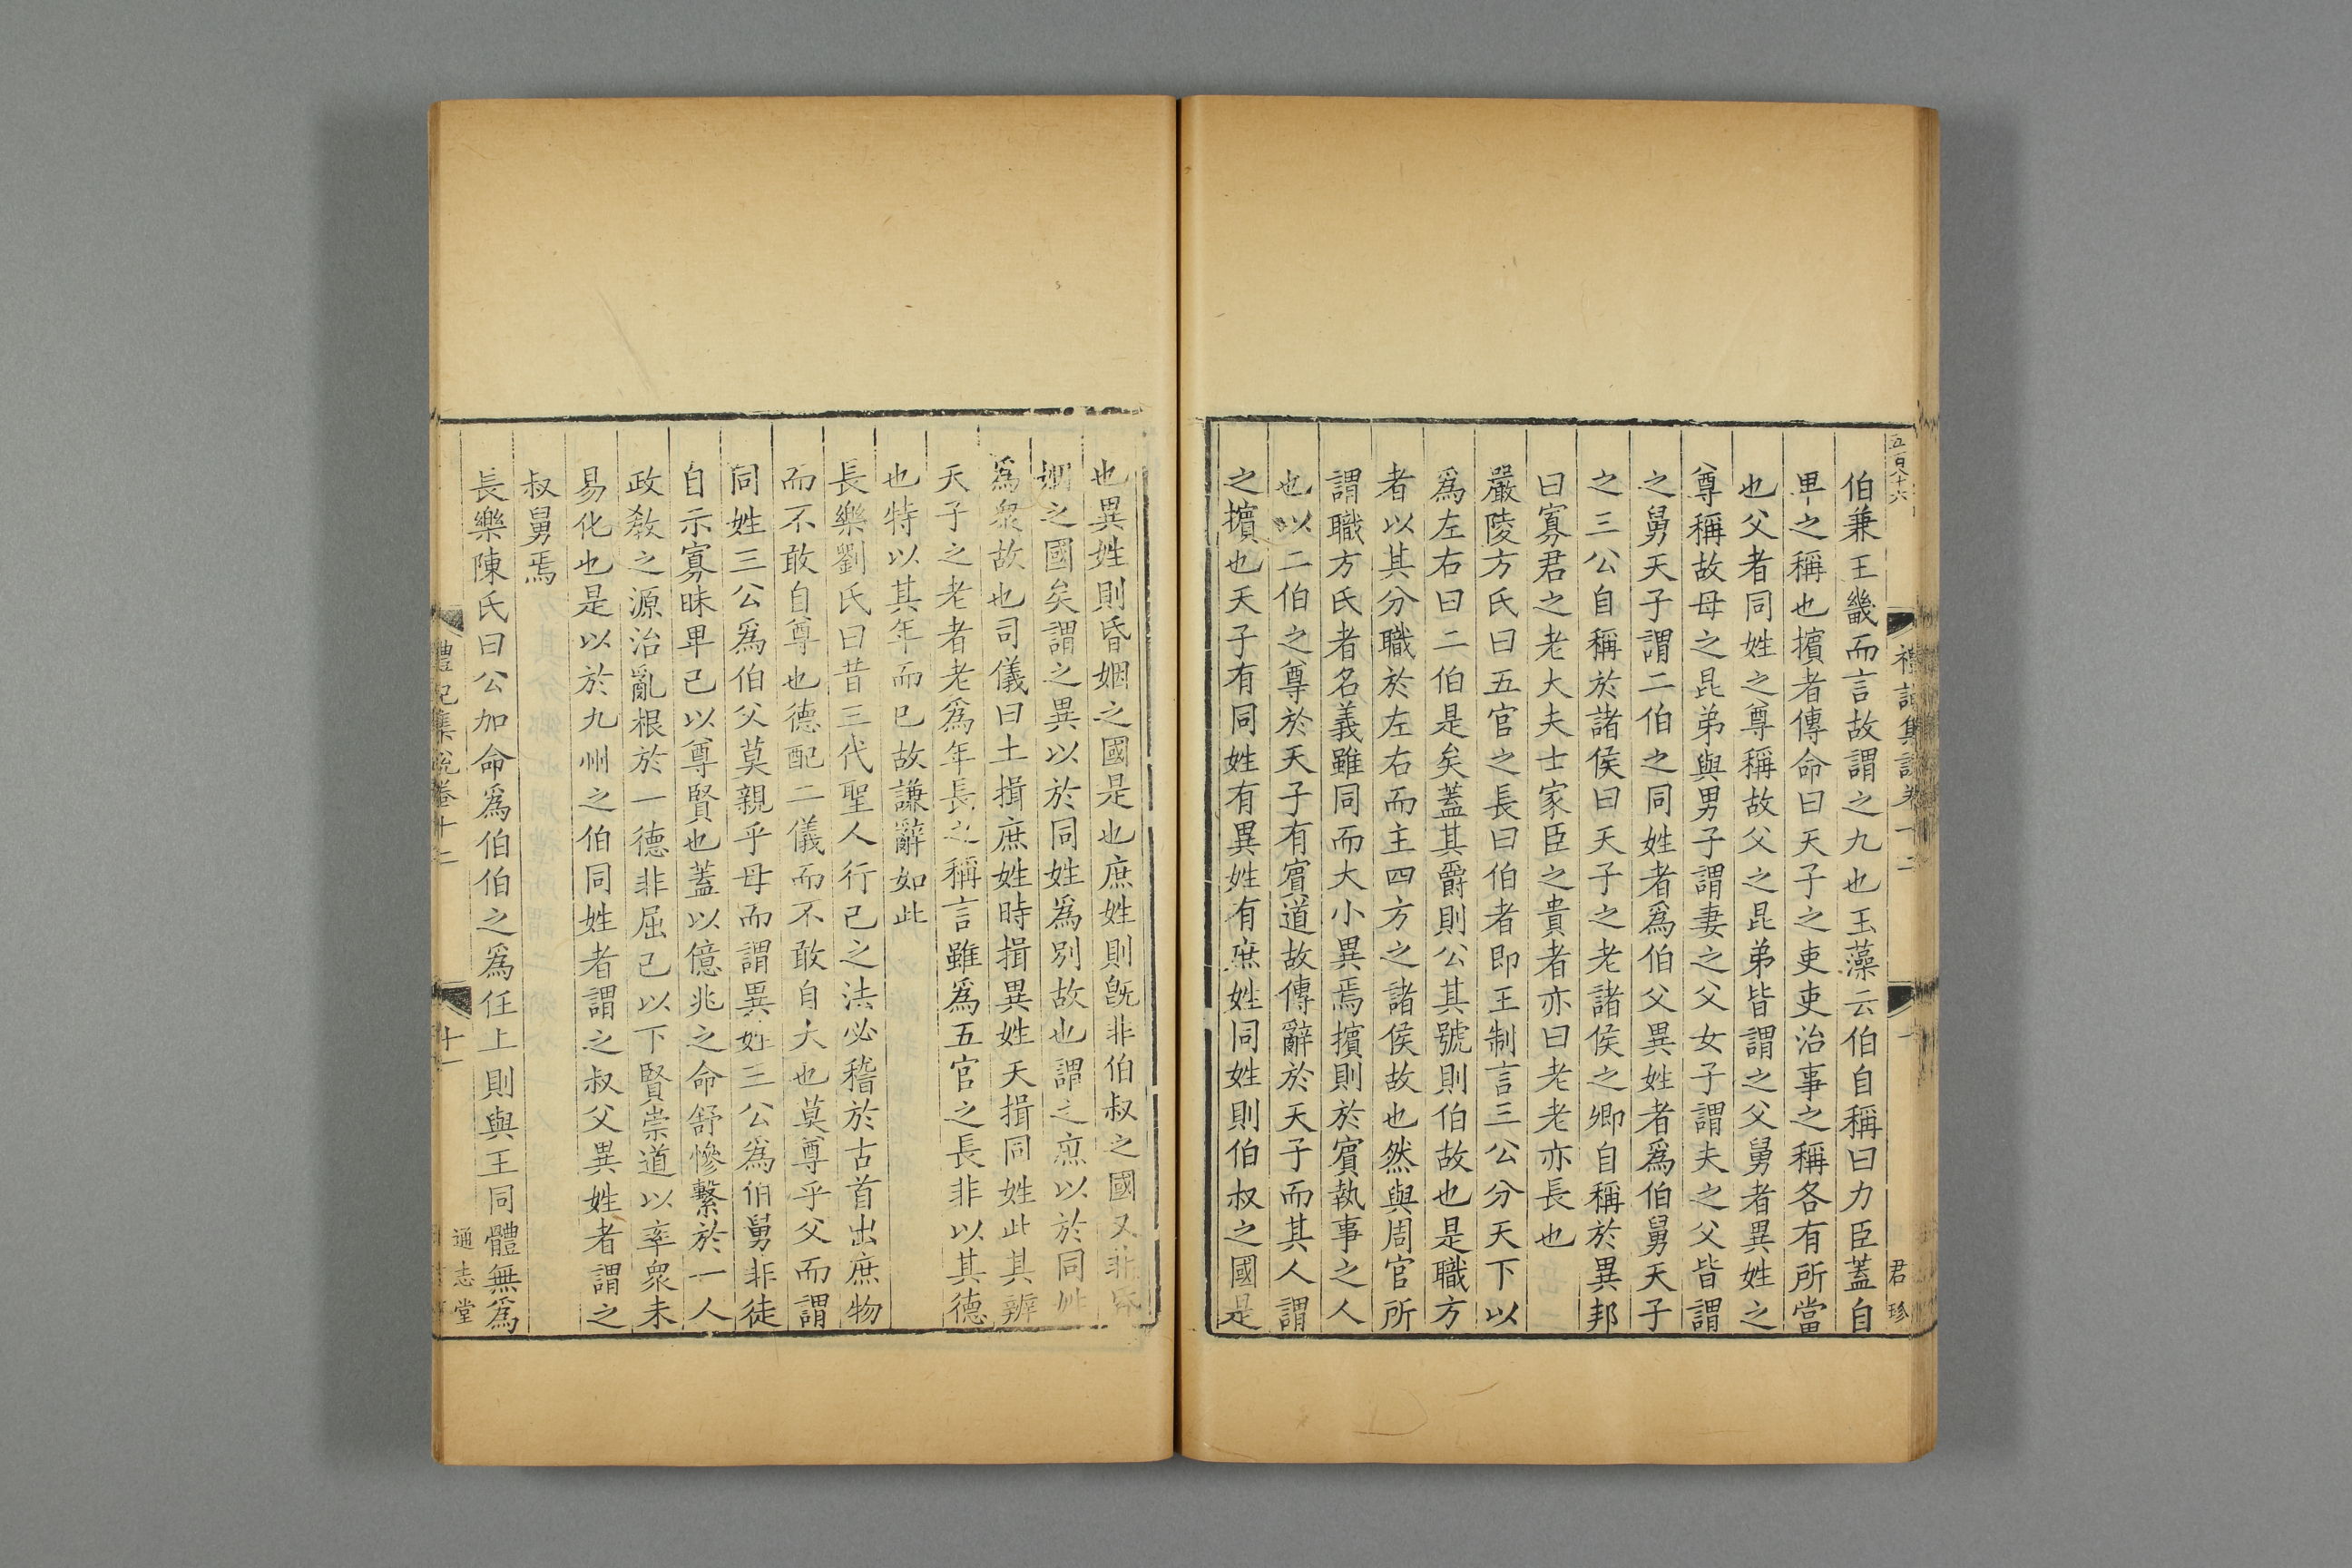 五百八十六
禮記集說卷十二
十
君珍
伯兼王畿而言故謂之九也玉藻云伯自稱曰力臣蓋自
卑之稱也擯者傳命曰天子之吏吏治事之稱各有所當
也父者同姓之尊稱故父之昆弟皆謂之父舅者異姓之
尊稱故母之昆弟與男子謂妻之父女子謂夫之父皆謂
之舅天子謂二伯之同姓者爲伯父異姓者爲伯舅天子
之三公自稱於諸侯曰天子之老諸侯之卿自稱於異邦
曰寡君之老大夫士家臣之貴者亦曰老老亦長也
嚴陵方氏曰五官之長曰伯者即王制言三公分天下以
爲左右曰二伯是矣蓋其爵則公其號則伯故也是職方
者以其分職於左右而主四方之諸侯故也然與周官所
謂職方氏者名義雖同而大小異焉擯則於賓執事之人
也以二伯之尊於天子有賓道故傳辭於天子而其人謂
之擯也天子有同姓有異姓有庶姓同姓則伯叔之國是
也異姓則昏姻之國是也庶姓則旣非伯叔之國又非昏
姻之國矣謂之異以於同姓爲別故也謂之庶以於同姓
爲衆故也司儀曰土揖庶姓時揖異姓天揖同姓此其辨
天子之老者老爲年長之稱言雖爲五官之長非以其德
也特以其年而已故謙辭如此
長樂劉氏曰昔三代聖人行己之法必稽於古首出庶物
而不敢自尊也德配二儀而不敢自大也莫尊乎父而謂
同姓三公爲伯父莫親乎母而謂異姓三公爲伯舅非徒
自示寡昧卑己以尊賢也蓋以億兆之命舒慘繫於一人
政敎之源治亂根於一德非屈己以下賢崇道以率衆未
易化也是以於九州之伯同姓者謂之叔父異姓者謂之
叔舅焉
長樂陳氏曰公加命爲伯伯之爲任上則與王同體無爲
禮記集說卷十二
十一
通志堂